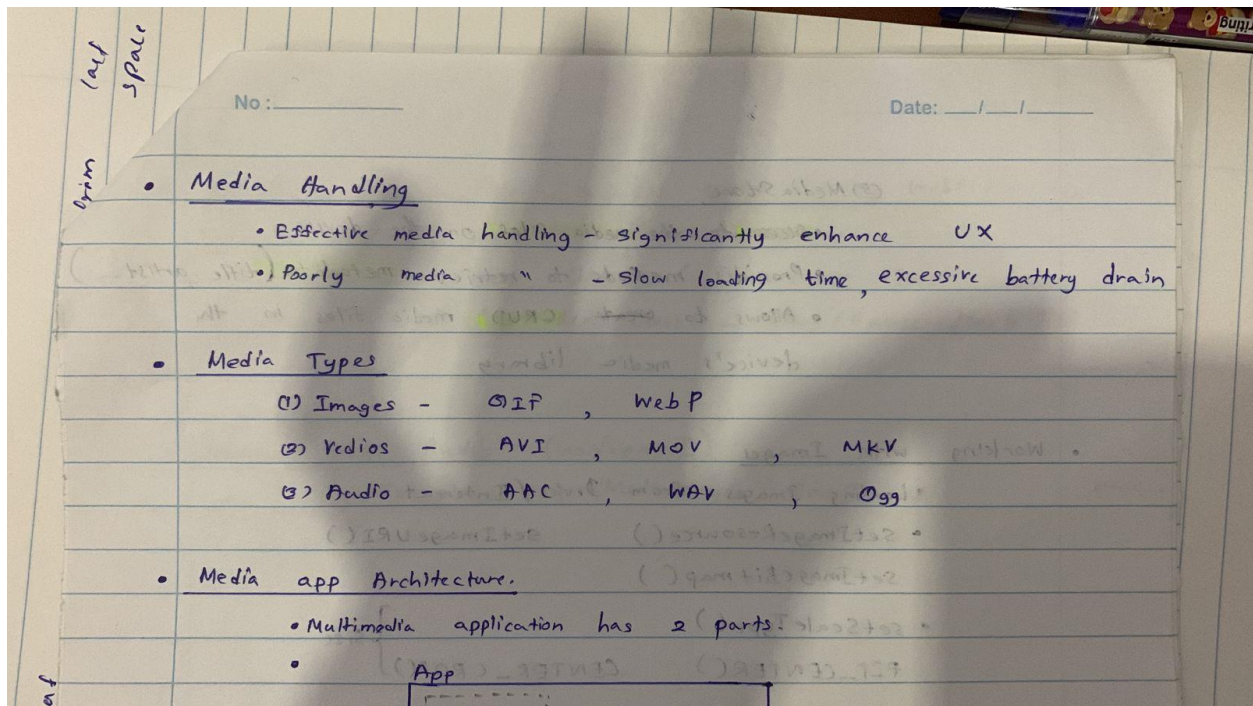 No :
Date: __/__/__
• Media Handling
• Effective media handling - significantly enhance UX
• Poorly media " - slow loading time, excessive battery drain
• Media Types
(1) Images - GIF, WebP
(2) Vedios - AVI, MOV, MKV
(3) Audio - AAC, WAV, Ogg
• Media app Architecture.
• Multimedia application has 2 parts.
•
App
space